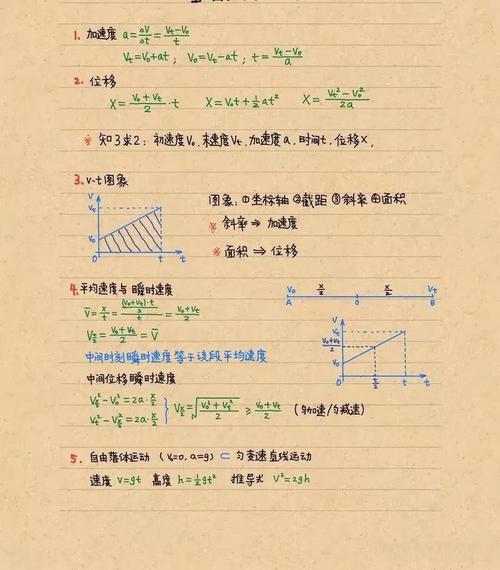 1. 加速度 a=ΔV/Δt=(Vt-V₀)/t
Vt=V₀+at; V₀=Vt-at; t=(Vt-V₀)/a
2. 位移
X=(V₀+Vt)/2·t X=V₀t+½at² X=(Vt²-V₀²)/2a
※ 知3求2: 初速度V₀、末速度Vt、加速度a、时间t、位移X、
3. v-t图象
V
Vt
V₀
0 t t
图象: ①坐标轴 ②截距 ③斜率 ④面积
※ 斜率⇒加速度
※ 面积⇒位移
4. 平均速度与瞬时速度
V̄=x/t=((V₀+Vt)/2·t)/t=(V₀+Vt)/2
Vt/2=(V₀+Vt)/2=V̄
中间时刻瞬时速度等于该段平均速度
V₀ x/2 x/2 Vt
A 0 B
V
Vt
(V₀+Vt)/2
V₀
0 t/2 t t
中间位移瞬时速度
Vx/2²-V₀²=2a·x/2
Vt²-Vx/2²=2a·x/2
Vx/2=√((V₀²+Vt²)/2) ≥ (V₀+Vt)/2 (匀加速/匀减速)
5. 自由落体运动 (V₀=0, a=g) ⊂ 匀变速直线运动
速度 V=gt 高度 h=½gt² 推导式 V²=2gh